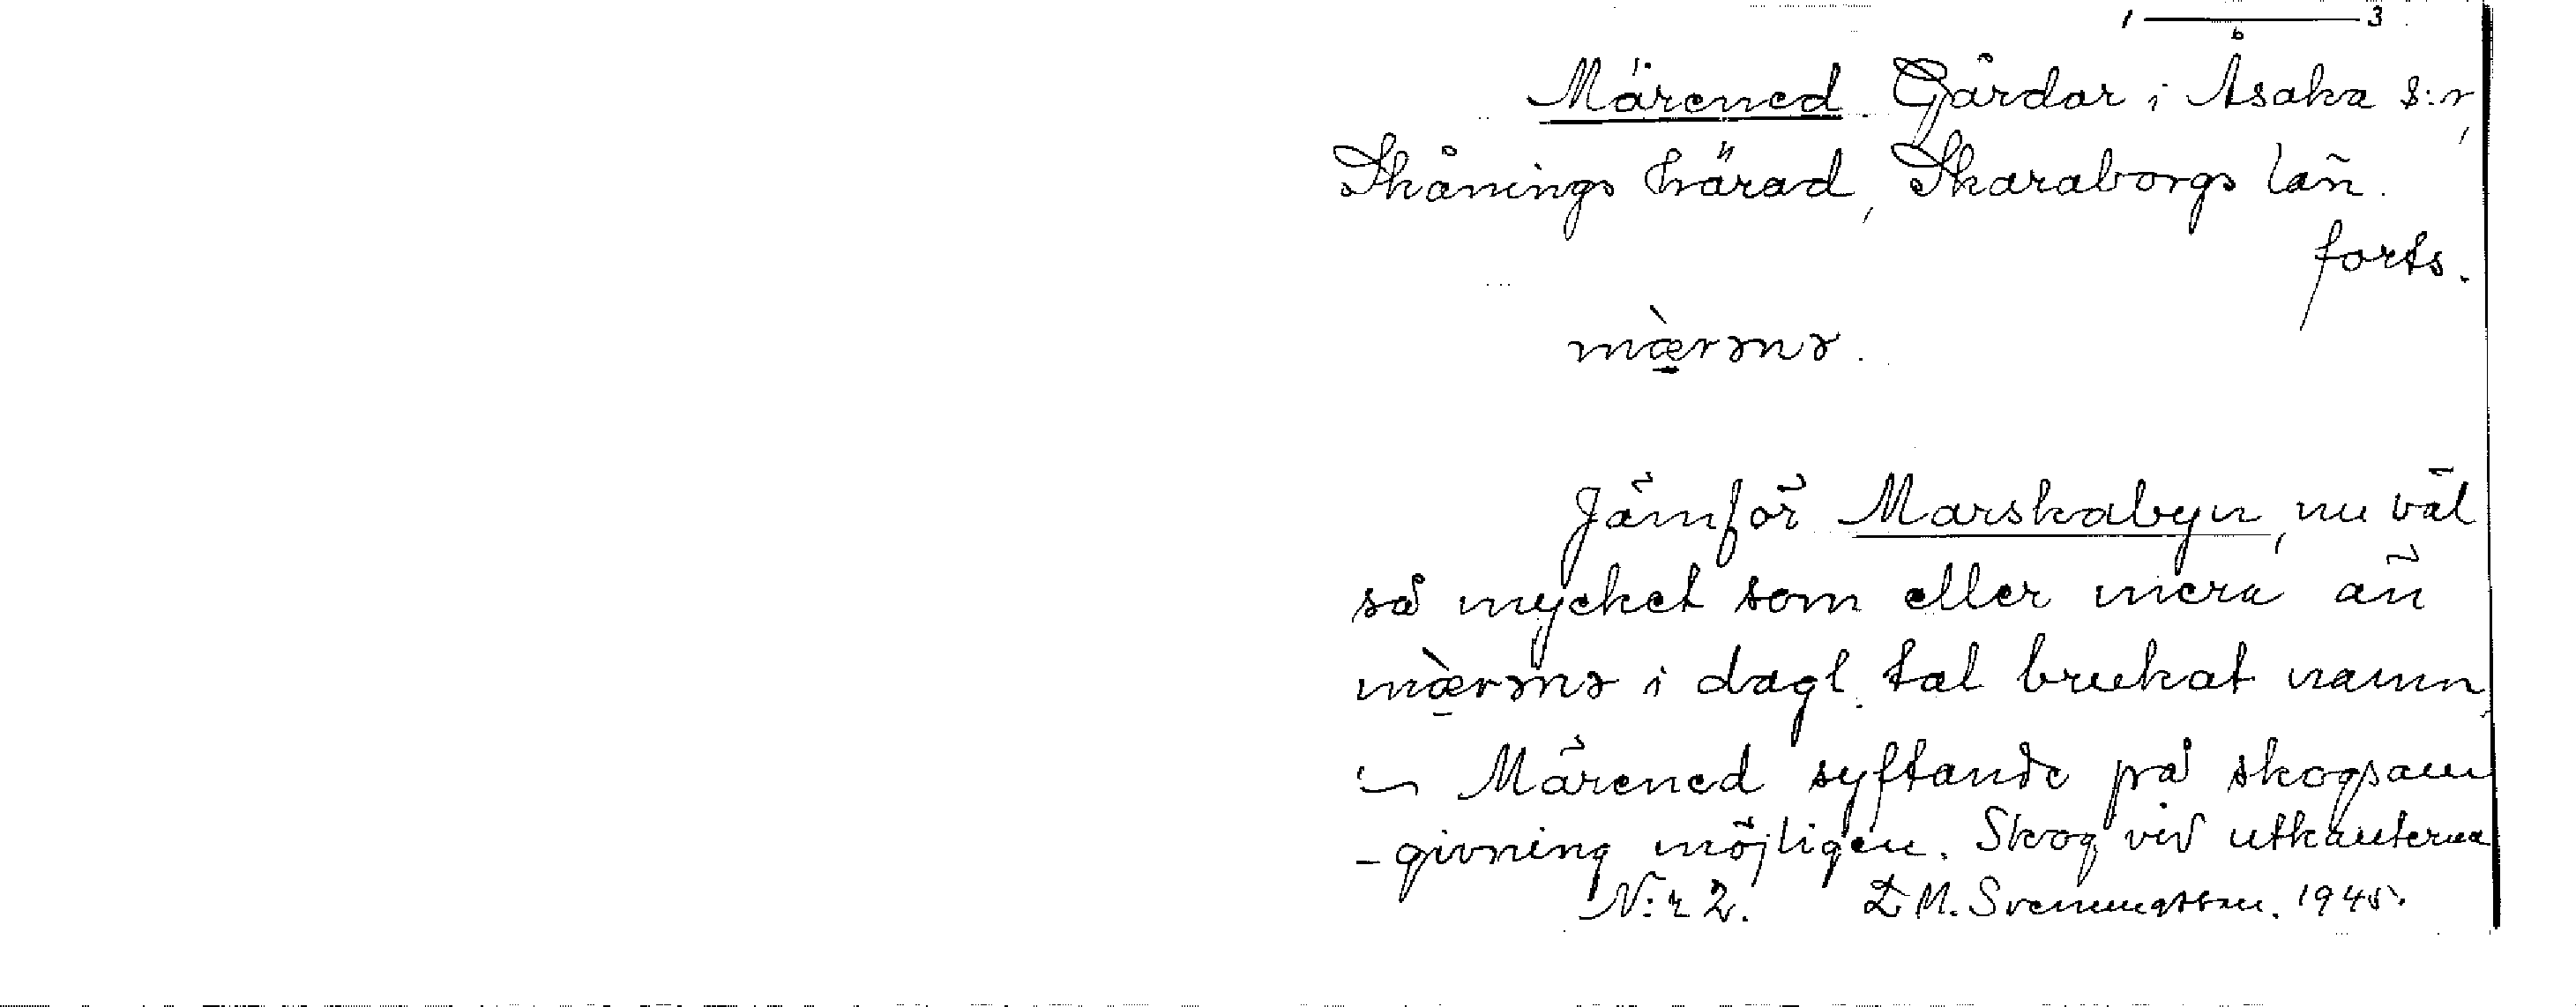 1 — 3
Märened Gårdar i Åsaka s:n,
Skånings härad, Skaraborgs län.
forts.
mæ̀rənə.
Jämför Marskabyn, nu väl
så mycket som eller mera än
mæ̀rənə i dagl. tal brukat namn,
Märened syftande på skogsam
-givning möjligen. Skog vid utkanterna
N:r 2. M. Svenungsson. 1945.